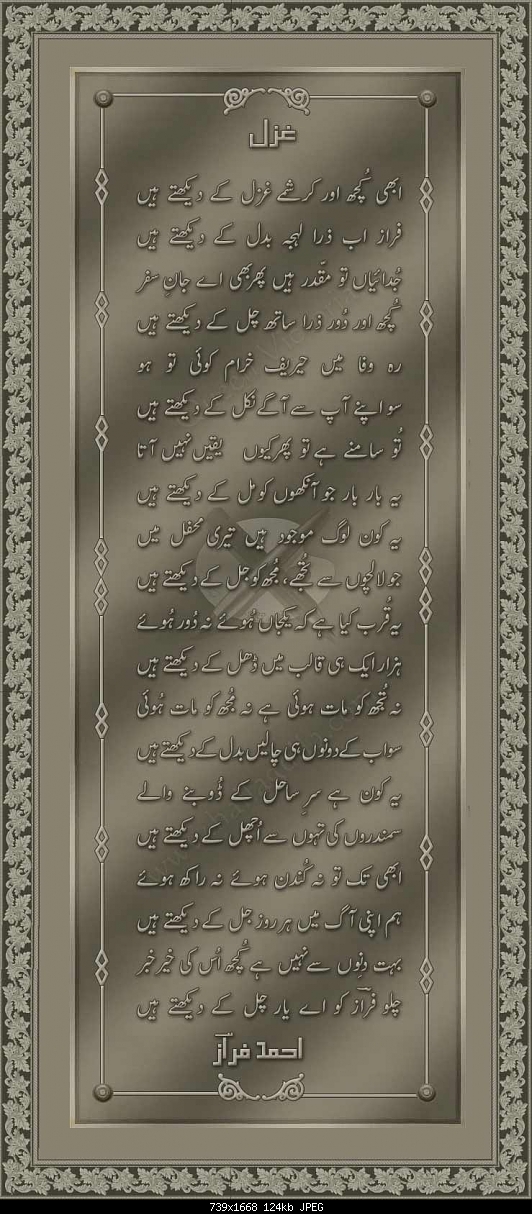 غزل
ابھی کُچھ اور کرشمے غزل کے دیکھتے ہیں
فراز اب ذرا لہجہ بدل کے دیکھتے ہیں
جُدائیاں تو مقّدر ہیں پھر بھی اے جانِ سفر
کُچھ اور دُور ذرا ساتھ چل کے دیکھتے ہیں
رہ وفا میں حریف خرام کوئی تو ہو
سو اپنے آپ سے آگے نکل کے دیکھتے ہیں
تُو سامنے ہے تو پھر کیوں یقیں نہیں آتا
یہ بار بار جو آنکھوں کو مل کے دیکھتے ہیں
یہ کون لوگ موجود ہیں تیری محفل میں
جو لالچوں سے تُجھے، مُجھ کو جل کے دیکھتے ہیں
یہ قُرب کیا ہے کہ یکجاں ہُوئے نہ دُور ہُوئے
ہزار ایک ہی قالب میں ڈھل کے دیکھتے ہیں
نہ تُجھ کو مات ہوئی ہے نہ مُجھ کو مات ہُوئی
سو اب کے دونوں ہی چالیں بدل کے دیکھتے ہیں
یہ کون ہے سرِ ساحل کے ڈُوبنے والے
سمندروں کی تہوں سے اُچھل کے دیکھتے ہیں
ابھی تک تو نہ کُندن ہوئے نہ راکھ ہوئے
ہم اپنی آگ میں ہر روز جل کے دیکھتے ہیں
بہت دِنوں سے نہیں ہے کُچھ اُس کی خیر خبر
چلو فرؔاز کو اے یار چل کے دیکھتے ہیں
احمد فرؔاز
739x1668 124kb JPEG